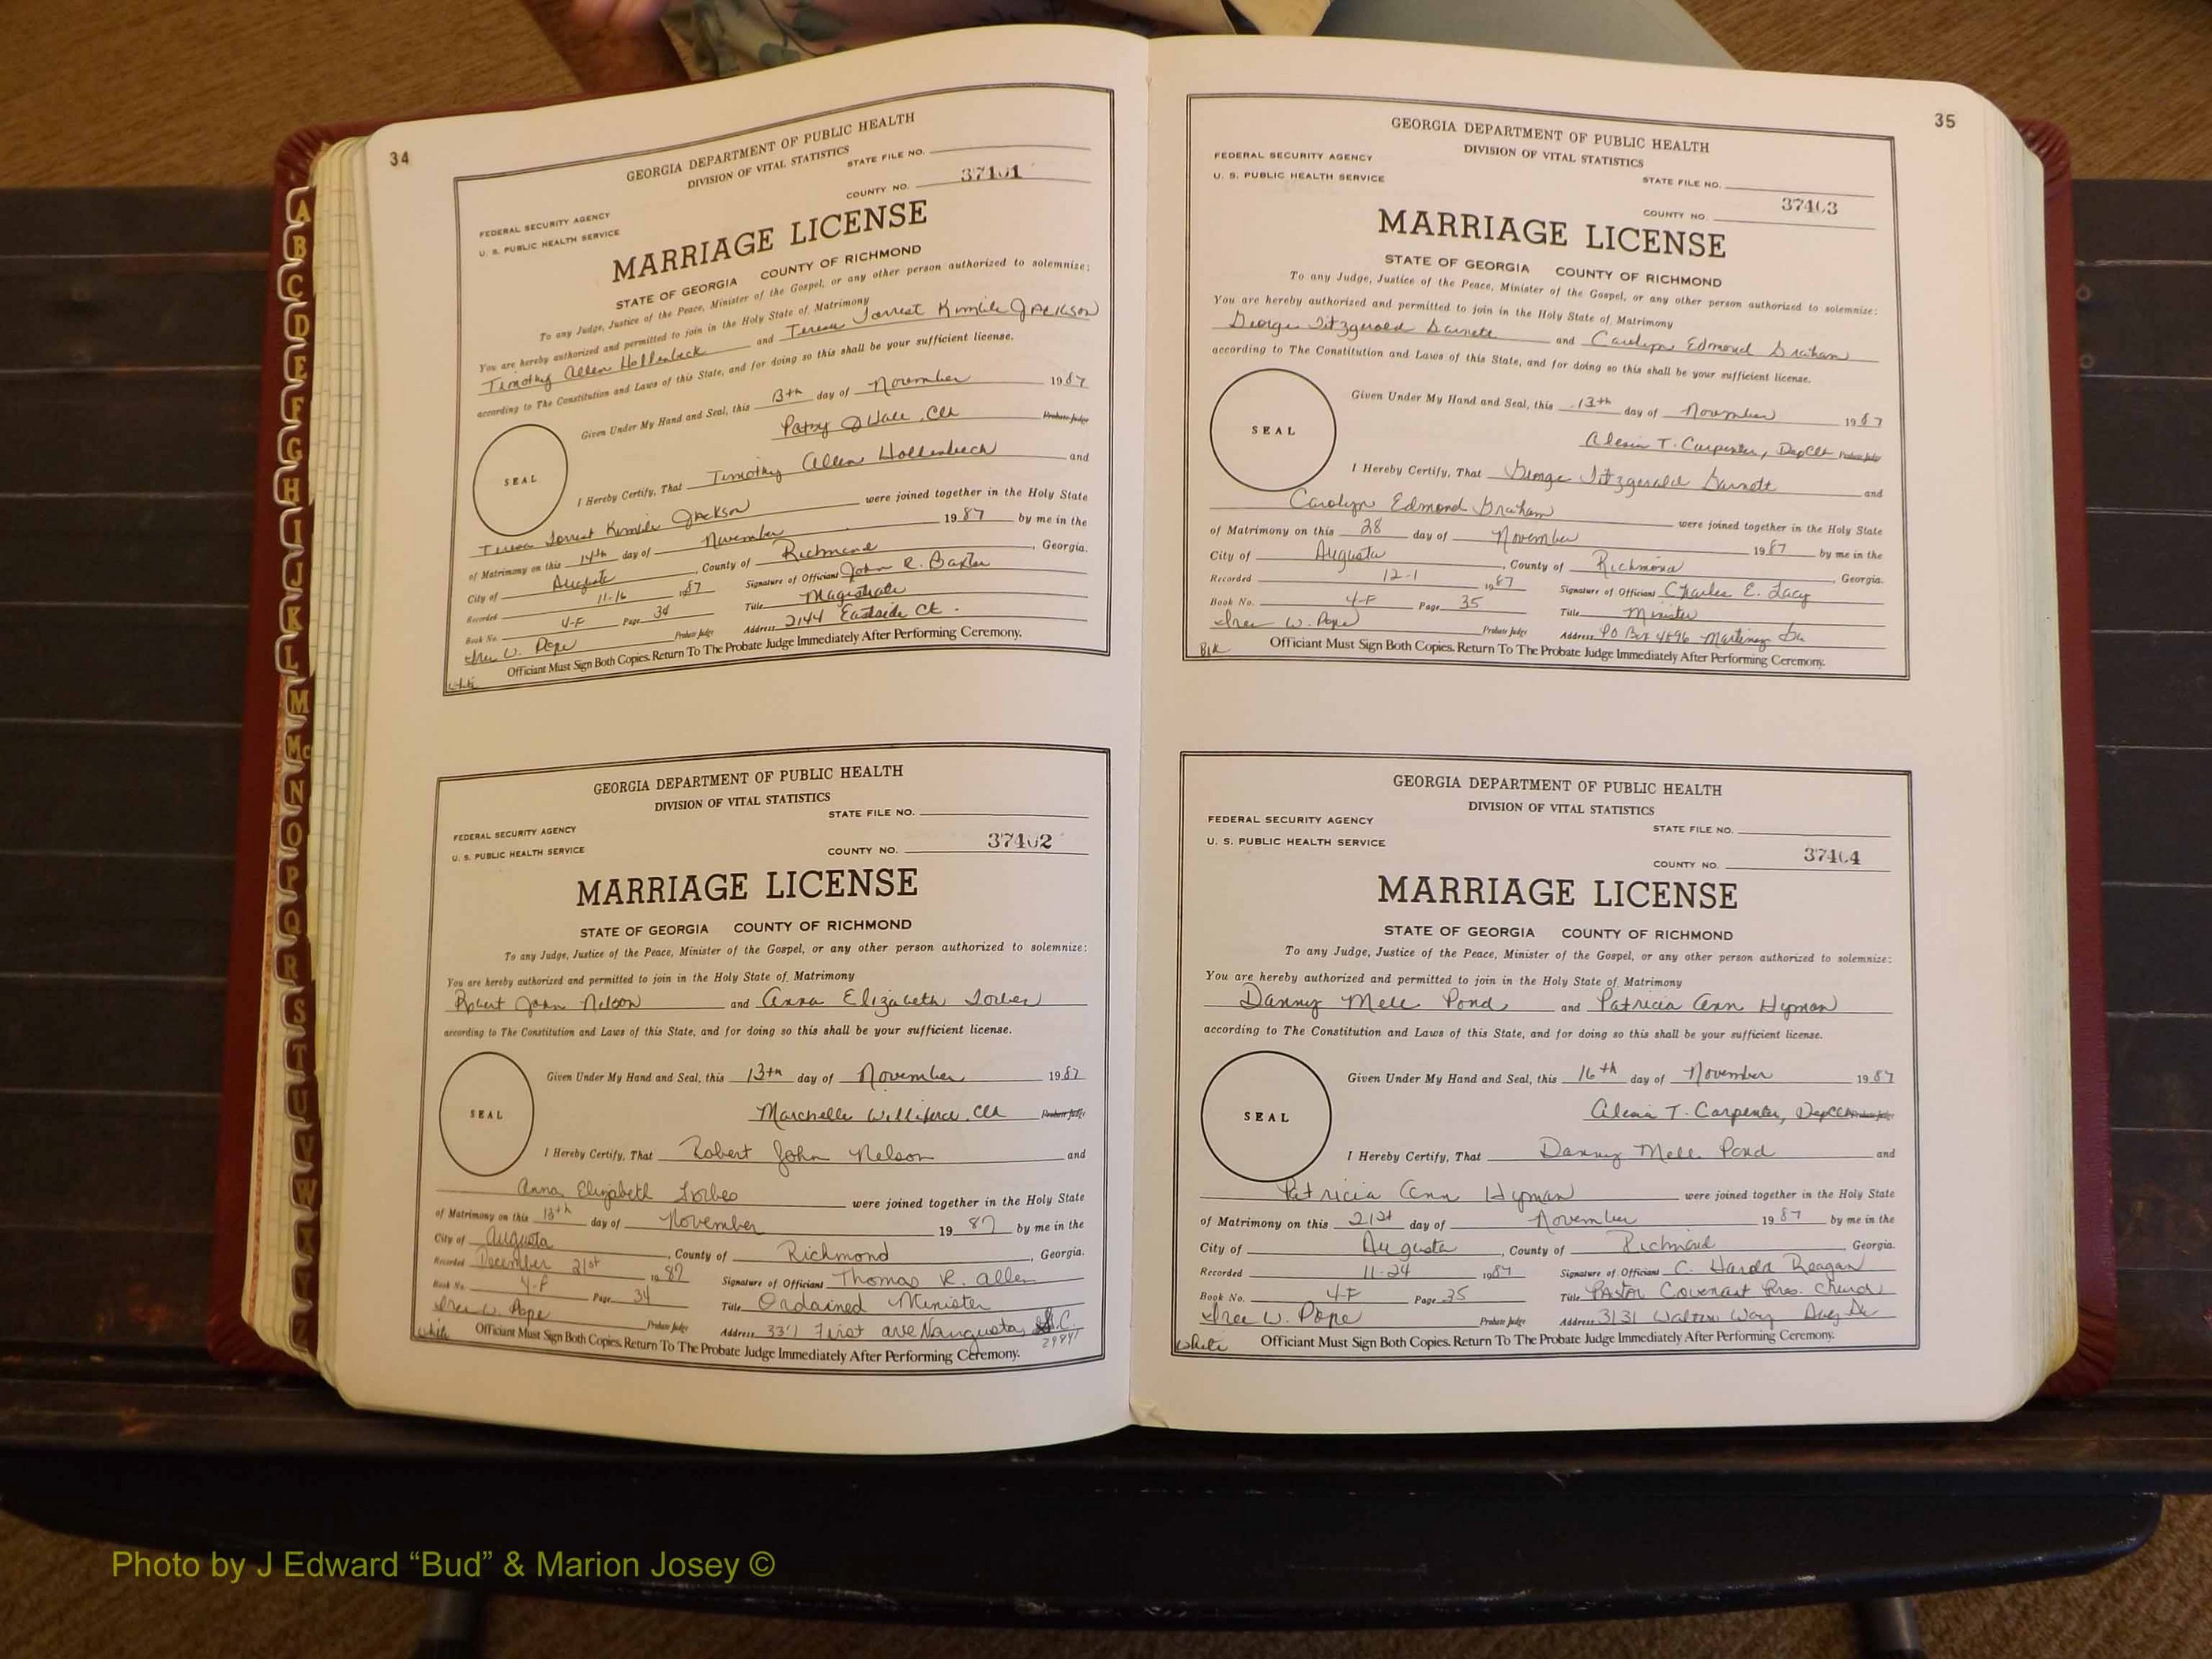 34
GEORGIA DEPARTMENT OF PUBLIC HEALTH
DIVISION OF VITAL STATISTICS
STATE FILE NO.
COUNTY NO. 37401
FEDERAL SECURITY AGENCY
U. S. PUBLIC HEALTH SERVICE
MARRIAGE LICENSE
STATE OF GEORGIA COUNTY OF RICHMOND
To any Judge, Justice of the Peace, Minister of the Gospel, or any other person authorized to solemnize:
You are hereby authorized and permitted to join in the Holy State of Matrimony
Timothy Allen Hollenbeck and Teresa Forrest Jackson
according to The Constitution and Laws of this State, and for doing so this shall be your sufficient license.
Given Under My Hand and Seal, this 13th day of November 1987
Patsy Clk Probate Judge
SEAL
I Hereby Certify, That Timothy Allen Hollenbeck and
Teresa Forrest Jackson were joined together in the Holy State
of Matrimony on this 14th day of November 1987 by me in the
City of Augusta, County of Richmond, Georgia.
Recorded 11-16 1987 Signature of Official John R. Baxter
Book No. 4-F Page 34 Title Magistrate
W. Pope Probate Judge Address 2144 Eastside Ct.
White Officiant Must Sign Both Copies. Return To The Probate Judge Immediately After Performing Ceremony.
GEORGIA DEPARTMENT OF PUBLIC HEALTH
DIVISION OF VITAL STATISTICS
STATE FILE NO.
FEDERAL SECURITY AGENCY
U. S. PUBLIC HEALTH SERVICE
COUNTY NO. 37402
MARRIAGE LICENSE
STATE OF GEORGIA COUNTY OF RICHMOND
To any Judge, Justice of the Peace, Minister of the Gospel, or any other person authorized to solemnize:
You are hereby authorized and permitted to join in the Holy State of Matrimony
Robert John Nelson and Anna Elizabeth Forbes
according to The Constitution and Laws of this State, and for doing so this shall be your sufficient license.
Given Under My Hand and Seal, this 13th day of November 1987
SEAL
Clk Probate Judge
I Hereby Certify, That Robert John Nelson and
Anna Elizabeth Forbes were joined together in the Holy State
of Matrimony on this 13th day of November 1987 by me in the
City of Augusta, County of Richmond, Georgia.
Recorded December 21st 1987 Signature of Officiant Thomas R. Allen
Book No. 4-F Page 34 Title Ordained Minister
W. Pope Probate Judge Address 337 First Ave N Augusta S.C.
29841
White Officiant Must Sign Both Copies. Return To The Probate Judge Immediately After Performing Ceremony.
35
GEORGIA DEPARTMENT OF PUBLIC HEALTH
DIVISION OF VITAL STATISTICS
FEDERAL SECURITY AGENCY
U. S. PUBLIC HEALTH SERVICE
STATE FILE NO.
COUNTY NO. 37403
MARRIAGE LICENSE
STATE OF GEORGIA COUNTY OF RICHMOND
To any Judge, Justice of the Peace, Minister of the Gospel, or any other person authorized to solemnize:
You are hereby authorized and permitted to join in the Holy State of Matrimony
George Fitzgerald Garnett and Carolyn Edmond Graham
according to The Constitution and Laws of this State, and for doing so this shall be your sufficient license.
Given Under My Hand and Seal, this 13th day of November 1987
SEAL
Alesia T. Carpenter, Dep Clk Probate Judge
I Hereby Certify, That George Fitzgerald Garnett and
Carolyn Edmond Graham were joined together in the Holy State
of Matrimony on this 28 day of November 1987 by me in the
City of Augusta, County of Richmond, Georgia.
Recorded 12-1 1987 Signature of Officiant Charles E. Lacy
Book No. 4-F Page 35 Title Minister
W. Pope Probate Judge Address PO Box 4896 Martinez Ga
Blk Officiant Must Sign Both Copies. Return To The Probate Judge Immediately After Performing Ceremony.
GEORGIA DEPARTMENT OF PUBLIC HEALTH
DIVISION OF VITAL STATISTICS
FEDERAL SECURITY AGENCY
STATE FILE NO.
U. S. PUBLIC HEALTH SERVICE
COUNTY NO. 37404
MARRIAGE LICENSE
STATE OF GEORGIA COUNTY OF RICHMOND
To any Judge, Justice of the Peace, Minister of the Gospel, or any other person authorized to solemnize:
You are hereby authorized and permitted to join in the Holy State of Matrimony
Danny Mell Pond and Patricia Ann Hyman
according to The Constitution and Laws of this State, and for doing so this shall be your sufficient license.
Given Under My Hand and Seal, this 16th day of November 1987
SEAL
Alesia T. Carpenter, Dep Clk Probate Judge
I Hereby Certify, That Danny Mell Pond and
Patricia Ann Hyman were joined together in the Holy State
of Matrimony on this 21st day of November 1987 by me in the
City of Augusta, County of Richmond Georgia.
Recorded 11-24 1987 Signature of Officiant C. Reagan
Book No. 4-F Page 35 Title Pastor Covenant Pres. Church
W. Pope Probate Judge Address 3131 Walton Way Aug Ga
White Officiant Must Sign Both Copies. Return To The Probate Judge Immediately After Performing Ceremony.
A
B
C
D
E
F
G
H
I
J
K
L
M
Mc
N
O
P
Q
R
S
T
U
V
W
X
Y
Z
Photo by J Edward “Bud” & Marion Josey ©